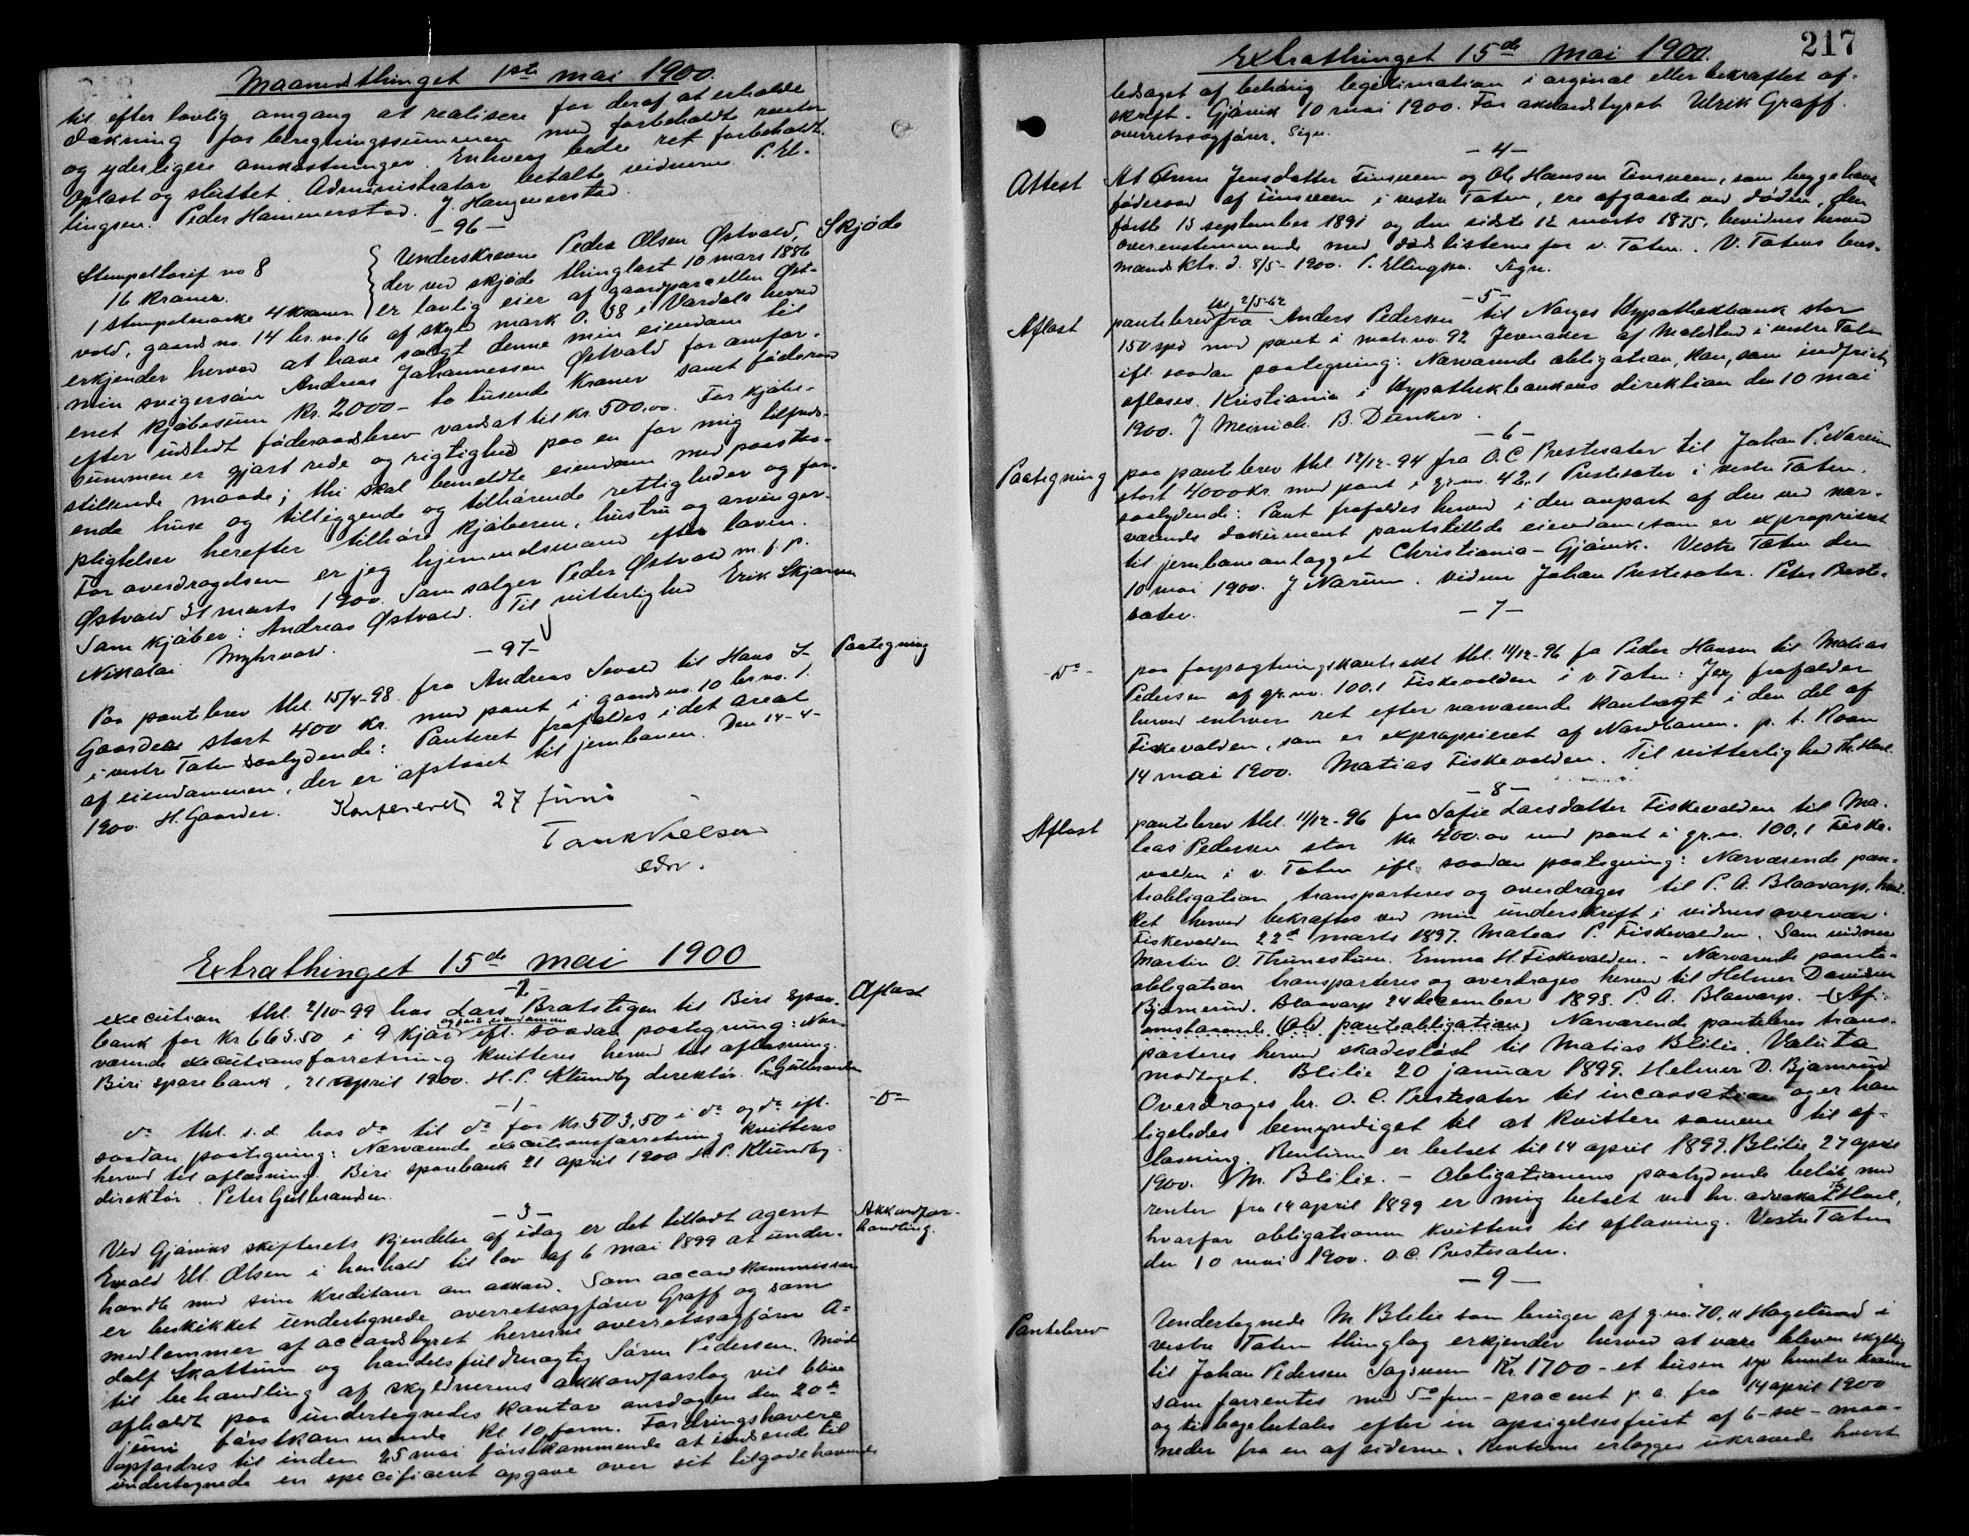 Maanedsthinget 1ste mai 1900.
til efter lovlig omgang at realisere for deraf at erholde
dækning for beregningssummen med forbeholdte renter
og yderligere omkostninger. Enhvers bedre ret forbeholdt.
Oplæst og sluttet. Administrator betalte vidnerne. P. El-
lingsen. Peder Hammerstad. J. Hammerstad.
- 96 -
Skjøde
Stempeltarif no 8
16 kroner.
1 stempelmærke 4 kroner
Underskrevne Peder Olsen Østvold,
der ved skjøde thinglæst 10 mars 1886
er lovlig eier af gaardparcellen Øst-
vold, gaards no. 14 br. no. 16 af skyld mark 0,38 i Vardals herred
erkjender herved at have solgt denne min eiendom til
min svigersøn Andreas Johannessen Østvold for omfor-
enet kjøbesum kr. 2000 - to tusende kroner samt føderaad
efter udstedt føderaadsbrev værdsat til kr. 500,00. For kjøbe-
summen er gjort rede og rigtighed paa en for mig tilfreds-
stillende maade; thi skal bemeldte eiendom med paastaa-
ende huse og tilliggende og tilhørende rettigheder og for-
pligtelser herefter tilhøre kjøberen, hustru og arvinger.
For overdragelsen er jeg hjemmelsmand efter loven.
Østvold 31 marts 1900. Som sælger Peder Østvold m.f.p.
Som kjøber: Andreas Østvold. Til vitterlighed Erik Skjerven
Nikolai Myhrvold.
- 97 -
Paategning
Paa pantebrev thl. 15/4-98 fra Andreas Sevald til Hans J.
Gaarder stort 400 kr. med pant i gaards no. 10 br. no. 1.
i vestre Toten saalydende: Panteret frafaldes i det areal
af eiendommen, der er afstaaet til jernbanen. Den 14-4-
1900. H. Gaarder. Konfereret 27 juni
Tank Nielsen
edsv.
Extrathinget 15de mai 1900
- 2 -
Aflæst
execution thl. 2/10-99 hos Lars Bratstigen til Biri spare-
bank for kr 663.50 i 9 kjør og paa eiendommen efl. saadan paategning: Nær-
værende executionsforretning kvitteres herved til aflæsning.
Biri sparebank, 21 april 1900. H. P. Klundby direktør. P. Gulbrandsen
- 1 -
-Do-
do thl. s.d. hos do til do for kr. 503,50 i do og do efl.
saadan paategning: Nærværende executionsforretning kvitteres
herved til aflæsning. Biri sparebank 21 april 1900 H. P. Klundby.
direktør. Peter Gulbrandsen.
- 3 -
Akkordfor-
handling.
Ved Gjøviks skifterets kjendelse af idag er det tilladt agent
Ewald Ell. Olsen i henhold til lov af 6 mai 1899 at under-
handle med sine kreditorer om akkord. Som accordkommissær
er beskikket undertegnede overretssagfører Graff og som
medlemmer af accordstyret herrerne overretssagfører A-
dolf Skattum og handelsfuldmægtig Søren Pedersen. Møde
til behandling af skyldnerens akkordforslag vil blive
afholdt paa undertegnedes kontor onsdagen den 20de
juni førstkommende kl 10 form. Fordringshavere
opfordres til inden 25 mai førstkommende at indsende til
undertegnede en specificeret opgave over sit tilgodehavende
217
Extrathinget 15de mai 1900.
ledsaget af behørig legitimation i orginal eller bekræftet af-
skrift. Gjøvik 10 mai 1900. For akkordstyret Ulrik Graff.
overretssagfører. Sign.
- 4 -
Attest
At Anne Jensdatter Finsveen og Ole Hansen Finsveen, som begge havde
føderaad af Finsveen i vestre Toten, ere afgaaede ved døden, den
første 13 september 1891 og den sidste 12 marts 1875, bevidnes herved
overensstemmende med dødslisterne for v. Toten. V. Totens lens-
mandsktr. d. 8/5-1900. P. Ellingsen. Sign.
- 5 -
Aflæst
pantebrev thl. 2/5-62 fra Anders Pedersen til Norges Hypothekbank stor
150 spd med pant i matr. no. 92 Jevnaker af Moldstad i vestre Toten
efl. saadan paategning: Nærværende obligation kan, som indfriet,
aflæses. Kristiania i Hypothekbankens direktion den 10 mai
1900. J Meinich. B. Dunker.
- 6 -
Paategning
paa pantebrev thl. 12/12-94 fra O. C Prestesæter til Johan P. Narum
stort 4000 kr. med pant i gr. no. 42,1 Prestesæter i vestre Toten.
saalydende: Pant frafaldes herved i den anpart af den ved nær-
værende dokument pantstillede eiendom, som er exproprieret
til jernbaneanlægget Christiania - Gjøvik. Vestre Toten den
10 mai 1900. J Narum. Vidner Johan Prestesæter. Peter Preste-
sæter.
- 7 -
-Do-
paa forpagtningskontrakt thl. 11/12-96 fra Peder Hansen til Matias
Pedersen af gr. no. 100.1 Fiskevolden i v. Toten: Jeg frafalder
herved enhver ret efter nærværende kontrakt i den del af
Fiskevolden, som er exproprieret af Nordbanen. p. t. Roen
14 mai 1900. Matias Fiskevolden. Til vitterlighed Th. Hoel.
- 8 -
Aflæst
pantebrev thl. 11/12-96 fra Sofie Larsdatter Fiskevolden til Ma-
teas Pedersen stor kr 400.00 med pant i gr. no. 100,1 Fiske-
volden i v. Toten efl. saadan paategning: Nærværende pan-
teobligation transporteres og overdrages til P. A. Blaavarp, hvil-
ket herved bekræftes ved min underskrift i vidners overvær
Fiskevolden 22de marts 1897. Mateas P. Fiskevolden. Som vidner
Martin O. Thunestuen. Emma H. Fiskevolden. - Nærværende pante-
obligation transporteres og overdrages herved til Helmer Davidsen
Bjørnerud. Blaavarp 24 december 1898. P. A. Blaavarp. - Nærværende pantebrev trans-
porteres herved skadesløst til Matias Blilie. Valuta
modtaget. Blilie 20 januar 1899. Helmer D. Bjørnerud
Overdrages hr. O. C. Prestesæter til incassation og er han
ligeledes bemyndiget til at kvittere samme til af-
læsning. Renterne er betalt til 14 april 1899. Blilie 27 april
1900. M. Blilie. - Obligationens paalydende beløb med
renter fra 14 april 1899 er mig betalt ved hr. advokat Th. Hoel,
hvorfor obligationen kvitteres til aflæsning. Vestre Toten
den 10 mai 1900. O. C. Prestesæter.
- 9 -
Pantebrev
Undertegnede M. Blilie som bruger af g. no. 70,11 Hagelund i
vestre Toten thinglag erkjender herved at være bleven skyldig
til Johan Pedersen Sagsveen Kr. 1700 - et tusen syv hundre kroner
som forrentes med 5% fem - procent p. a. fra 14 april 1900
og tilbagebetales efter en opsigelsesfrist af 6 - sex - maa-
neder fra en af siderne. Renterne erlægges ukrævede hvert